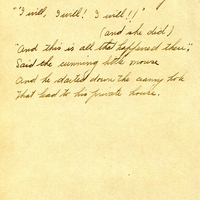 "'I will, I will! I will!!'
(and she did)
"And this is all that happened there",
Said the cunning little mouse
And he started down the cranny hole
That lead to his private house.